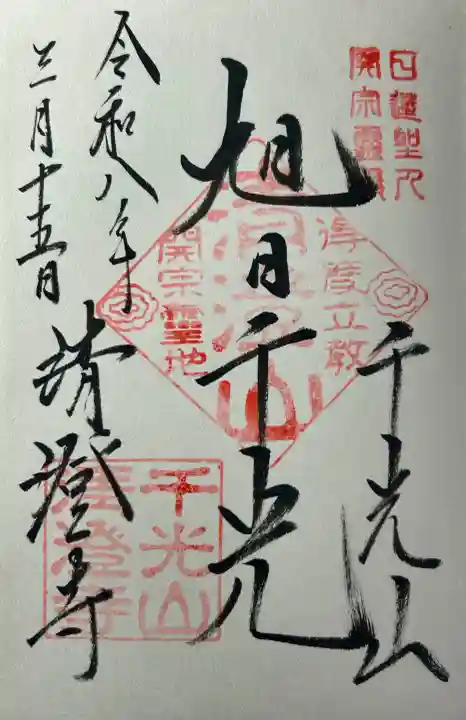 日蓮聖人
開宗靈場
千光山
旭日千光
得度立教
清澄山
開宗靈地
令和八年
三月十五日
清澄寺
千光山
清澄寺